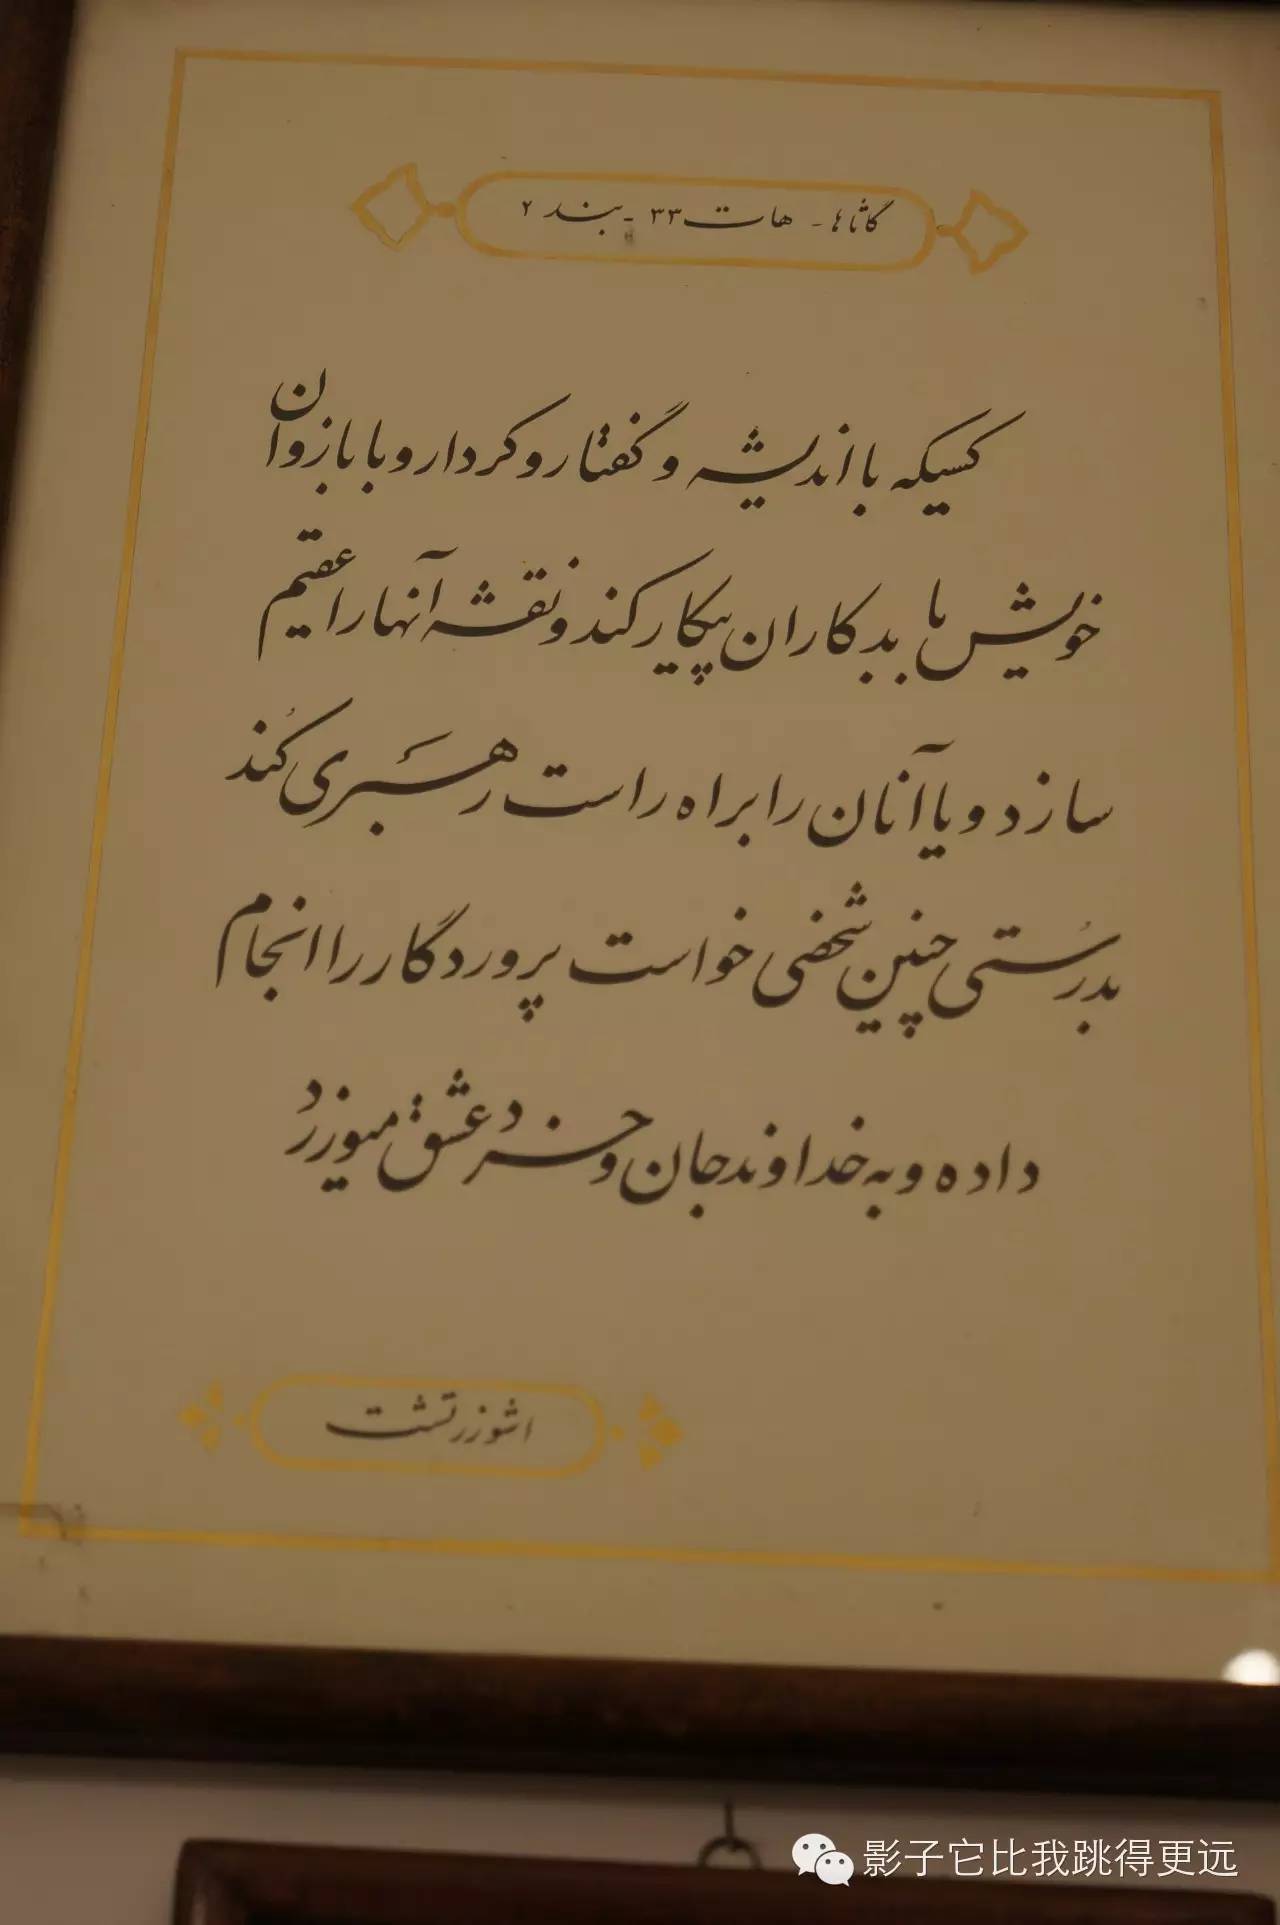 گاثاها - هات ۳۳ - بند ۲
کسیکه با اندیشه و گفتار و کردار و با بازوان
خویش با بدکاران پیکار کند و نقشه آنها را عقیم
سازد و یا آنان را براه راست رهَبری کُند
بدرُستی چنین شخصی خواست پروردگار را انجام
داده و به خداوند جان و خرد عشق میورزد
اشوزرتشت
影子它比我跳得更远